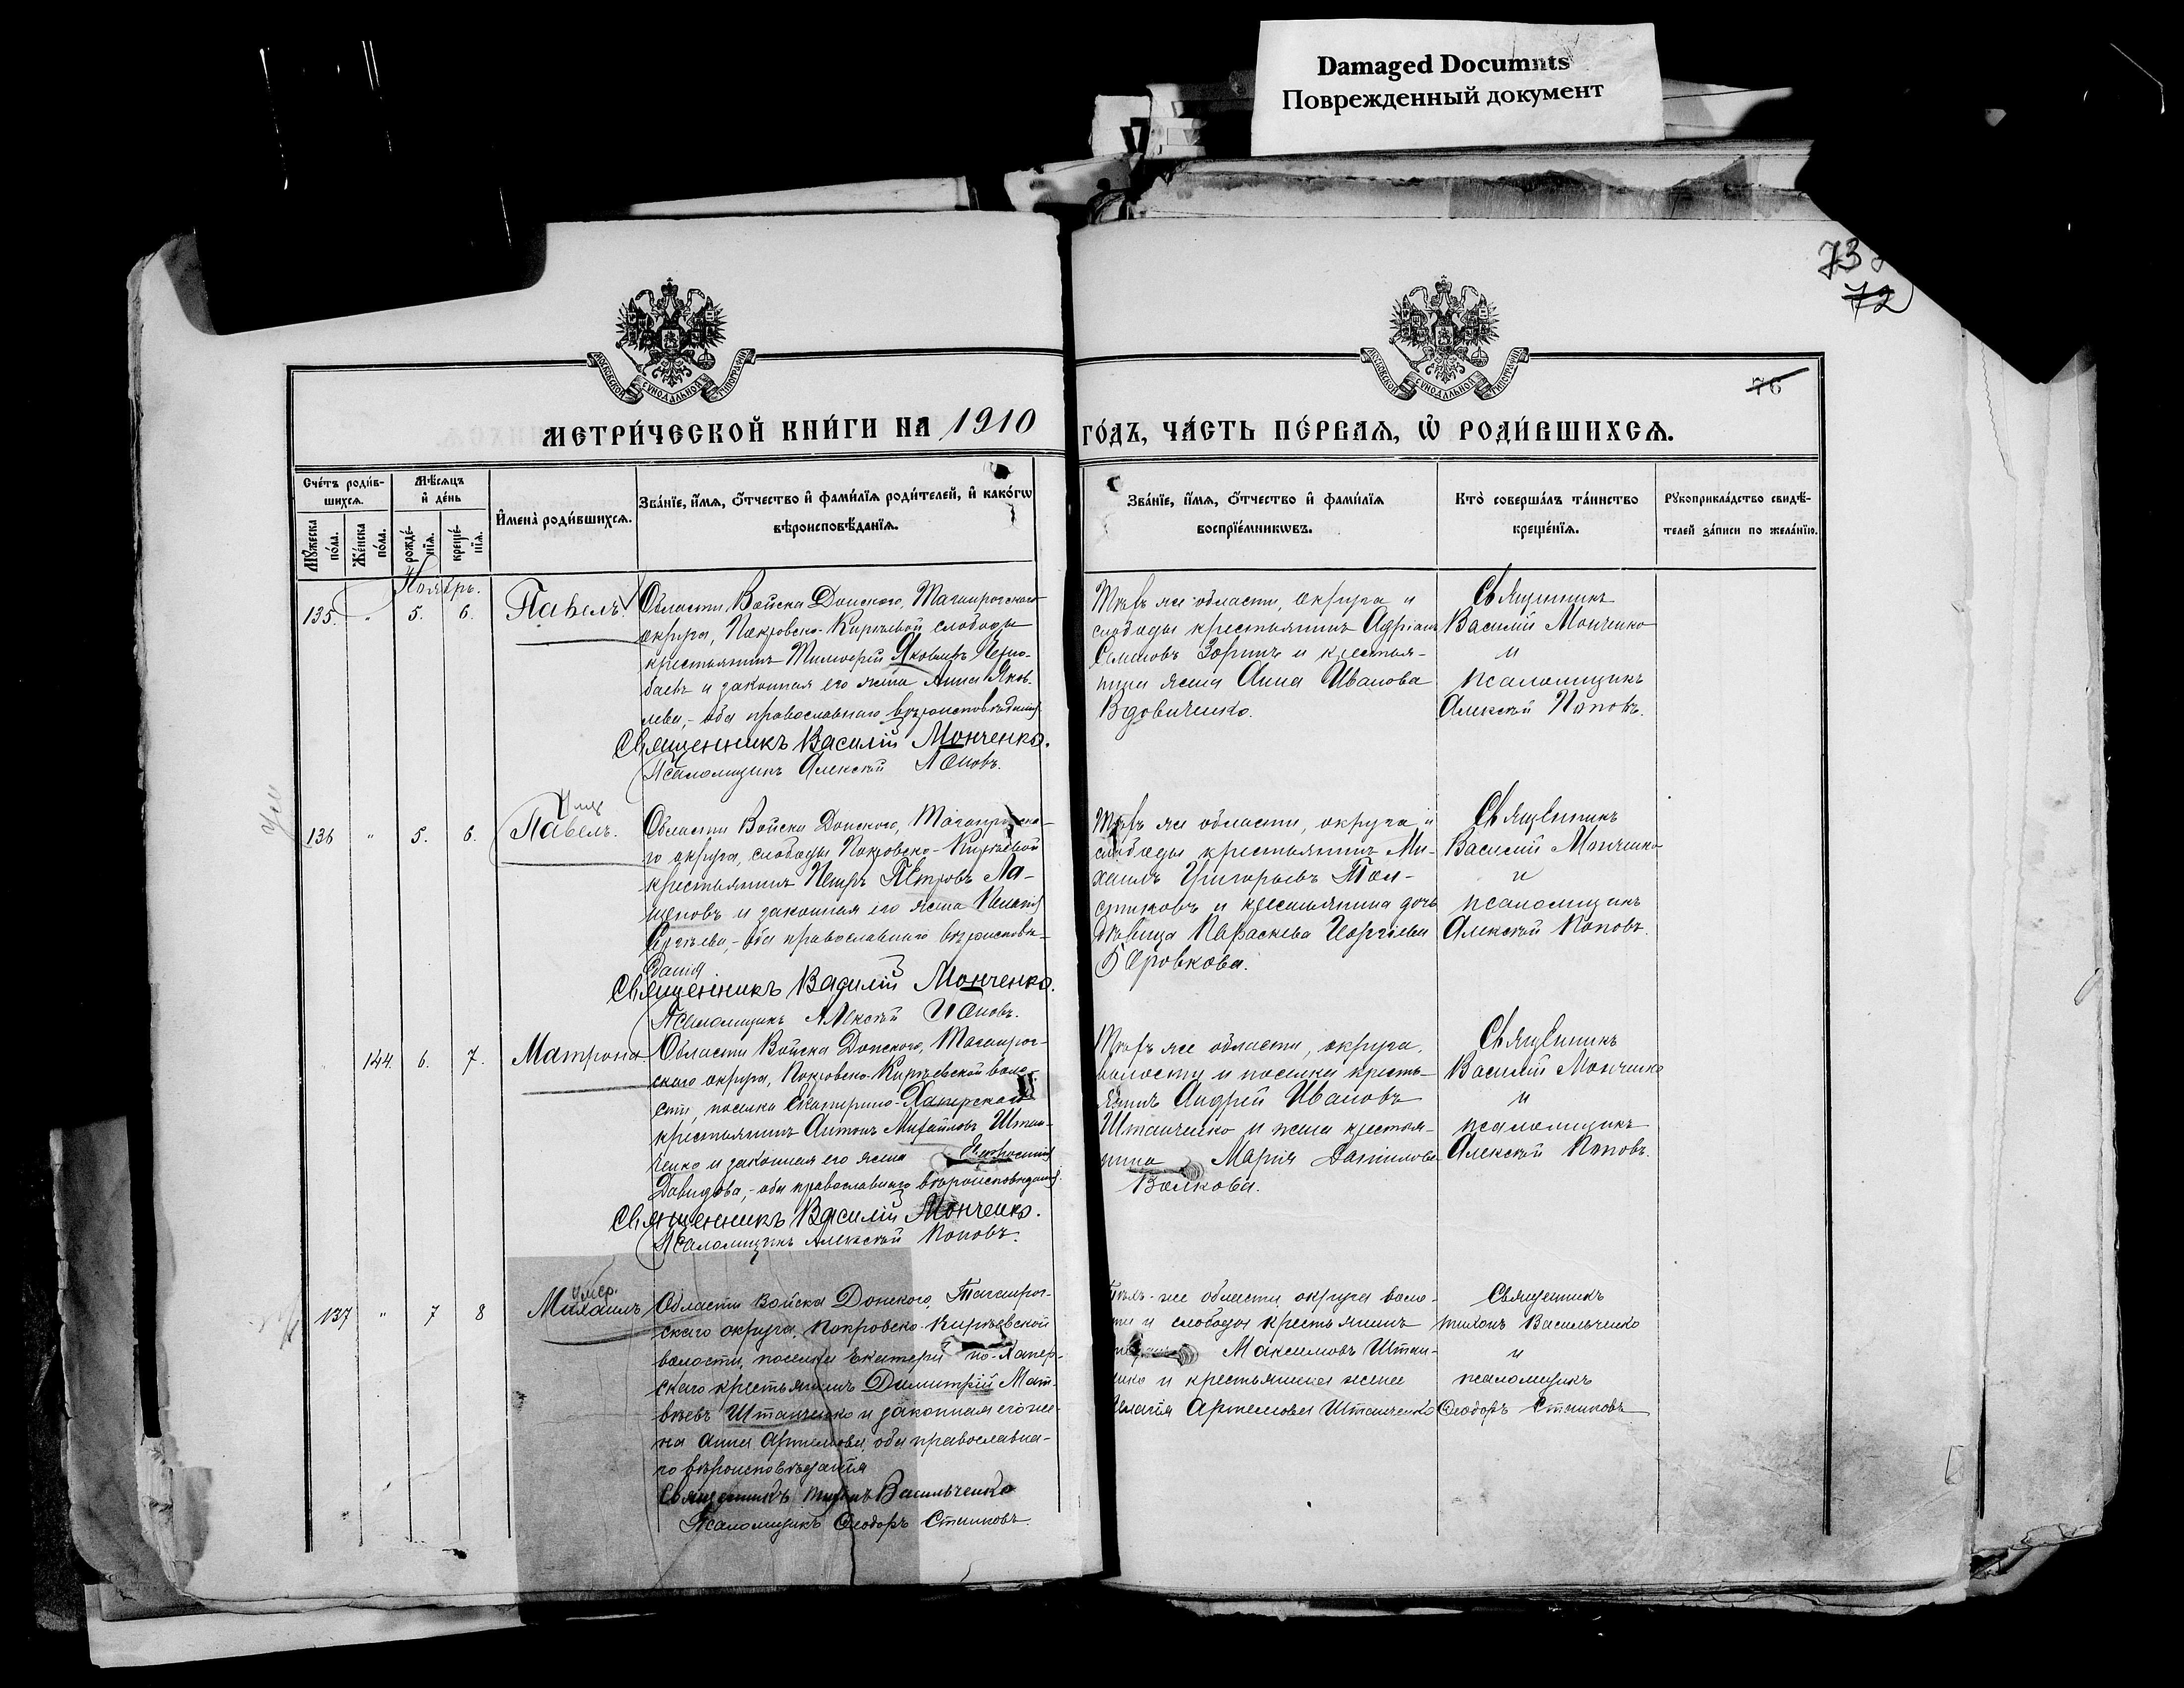 Damaged Documnts
Поврежденный документ
73
72
76
МОСКОВСКОЙ СѴНОДАЛЬНОЙ ТИПОГРАФІИ
МОСКОВСКОЙ СѴНОДАЛЬНОЙ ТИПОГРАФІИ
МЕТРИ́ЧЕСКОЙ КНИ́ГИ НА 1910
ГО́ДЪ, ЧА́СТЬ ПЕ́РВАѦ, Ѡ҆ РОДИ́ВШИХСѦ.
Сче́тъ роди́в-
шихсѧ.
Мꙋ́жеска по́ла.
Же́нска по́ла.
Мѣ́сѧцъ и҆ де́нь
рожде́-
нїѧ.
креще́-
нїѧ.
И҆мена̀ роди́вшихсѧ.
Зва́нїе, и҆́мѧ, ѻ҆́тчество и҆ фами́лїѧ роди́телей, и҆ како́гѡ
вѣроисповѣ́данїѧ.
Зва́нїе, и҆́мѧ, ѻ҆́тчество и҆ фами́лїѧ
воспрїе́мникѡвъ.
Кто̀ соверша́лъ та́инство
креще́нїѧ.
Рꙋкоприкла́дство свидѣ́-
телей за́писи по жела́нїю.
Ноябрь.
135. " 5. 6. Павелъ
Области Войска Донского, Таганрогскаго
округа, Покровско-Киреевой слободы
крестьянинъ Тимоѳей Яковлевъ
баевъ и законная его жена Анна Яков-
лева,- оба православнаго вѣроисповѣданія
Священникъ Василій Монченко.
Псаломщикъ Алексѣй Поповъ.
Той же области, округа и
слободы крестьянинъ Адріанъ
Семеновъ Зоринъ и крестья-
нина жена Анна Иванова
Вдовиченко.
Священникъ
Василій Монченко
и
псаломщикъ
Алексѣй Поповъ.
136 " 5. 6. Павелъ.
Области Войска Донского, Таганрогска-
го округа, слободы Покровско-Киреевой
крестьянинъ Петръ Петровъ Ла-
и законная его жена Пелагія
Сергѣева,- оба православнаго вѣроисповѣ-
данія.
Священникъ Василій Монченко.
Псаломщикъ Алексѣй Поповъ.
Той же области, округа и
слободы крестьянинъ Ми-
хаилъ Григорьевъ Тол-
стиковъ и крестьянина дочь
дѣвица Параскева Георгіева
Боровкова.
Священникъ
Василій Монченко
и
псаломщикъ
Алексѣй Поповъ.
" 144. 6. 7. Матрона.
Области Войска Донского, Таганрог-
скаго округа, Покровско-Киреевской воло-
сти, поселка Екатерино-Хаперскаго
крестьянинъ Антонъ Михайловъ Штан-
ченко и законная его жена Евфросинія
Давидова,- оба православнаго вѣроисповѣданія.
Священникъ Василій Монченко.
Псаломщикъ Алексѣй Поповъ.
Той же области, округа,
волости и поселка кресть-
янинъ Андрей Ивановъ
Штанченко и жена крестья-
нина Марія Данилова
Волкова.
Священникъ
Василій Монченко
и
псаломщикъ
Алексѣй Поповъ.
137 " 7 8 умер. Михаилъ
Области Войска Донского, Таганрог-
скаго округа, Покровско-Киреевской
волости, поселка Екатери но-Хапер-
скаго крестьянинъ Димитрій Мат-
вѣевъ Штанченко и законная его же-
на Анна Артемова, оба православна-
го вѣроисповѣданія
Священникъ Тихонъ Васильченко
Псаломщикъ Ѳеодоръ Стениковъ
же области, округа воло-
и слободы крестьянинъ
Максимовъ Штан-
и крестьянина жена
Артемова Штанченко
Священникъ
Тихонъ Васильченко
и
псаломщикъ
Ѳеодоръ Стениковъ